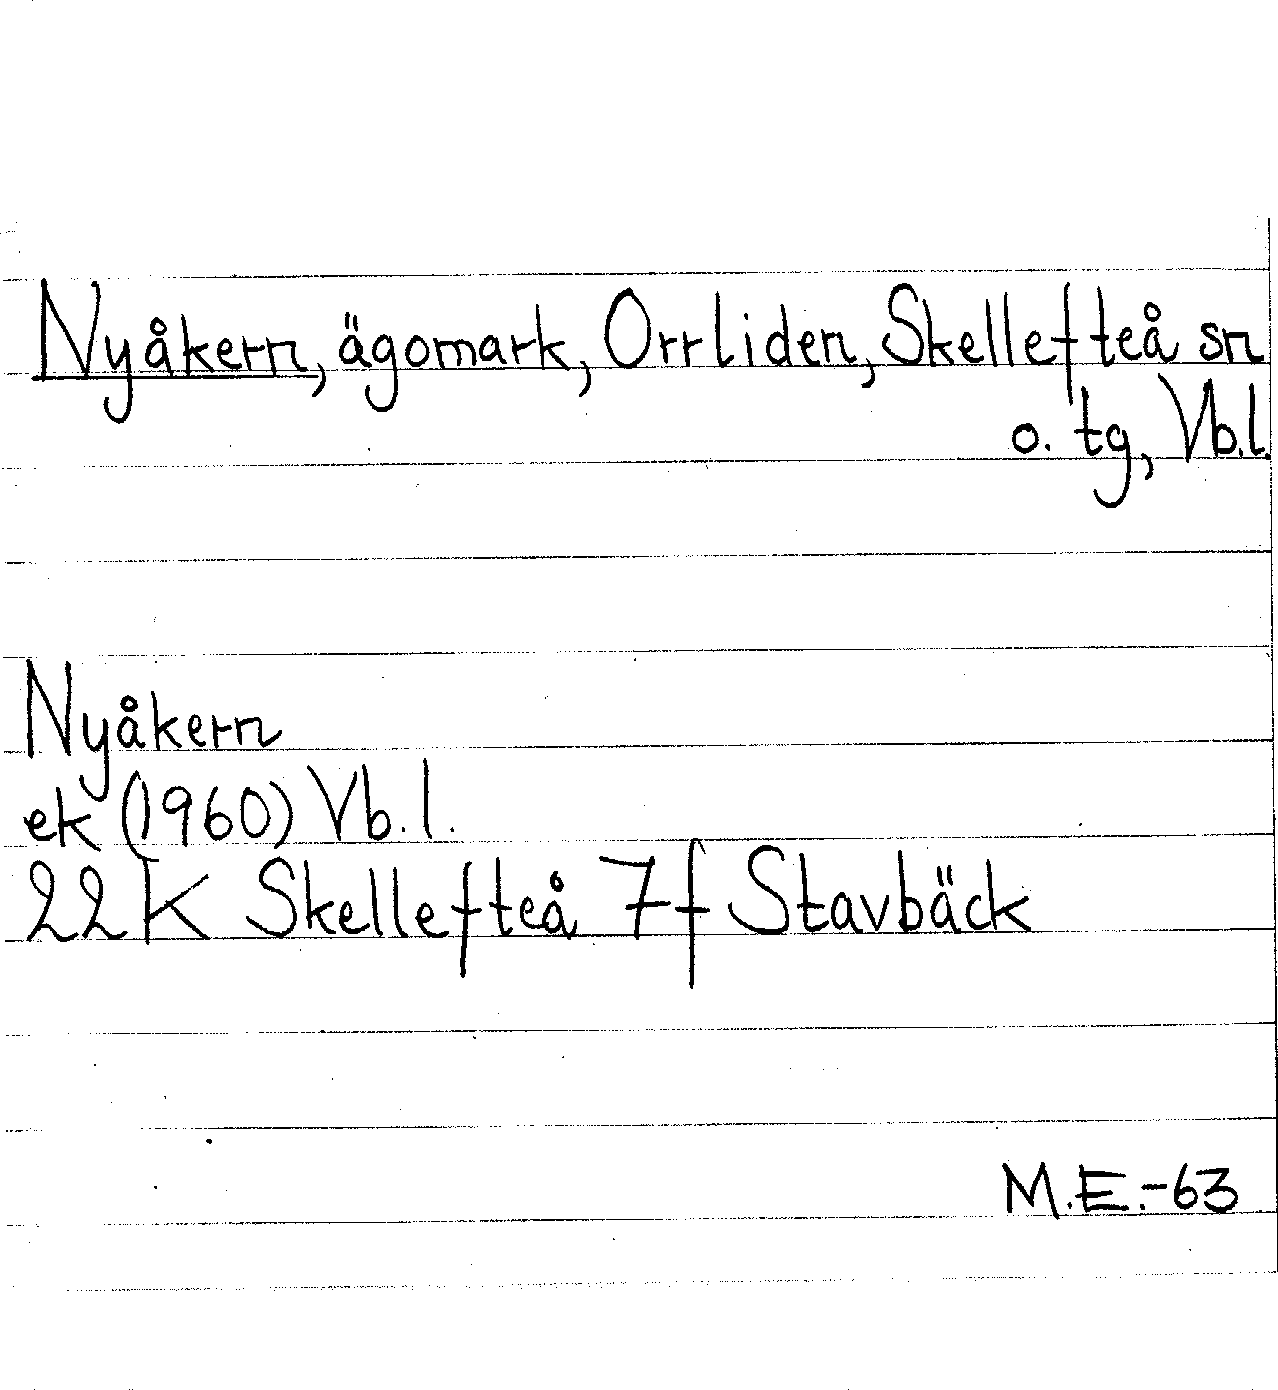 Nyåkern, ägomark, Orrliden, Skellefteå sn
o. tg, Vb.l.
Nyåkern
ek (1960) Vb.l.
22K Skellefteå 7f Stavbäck
M.E.-63